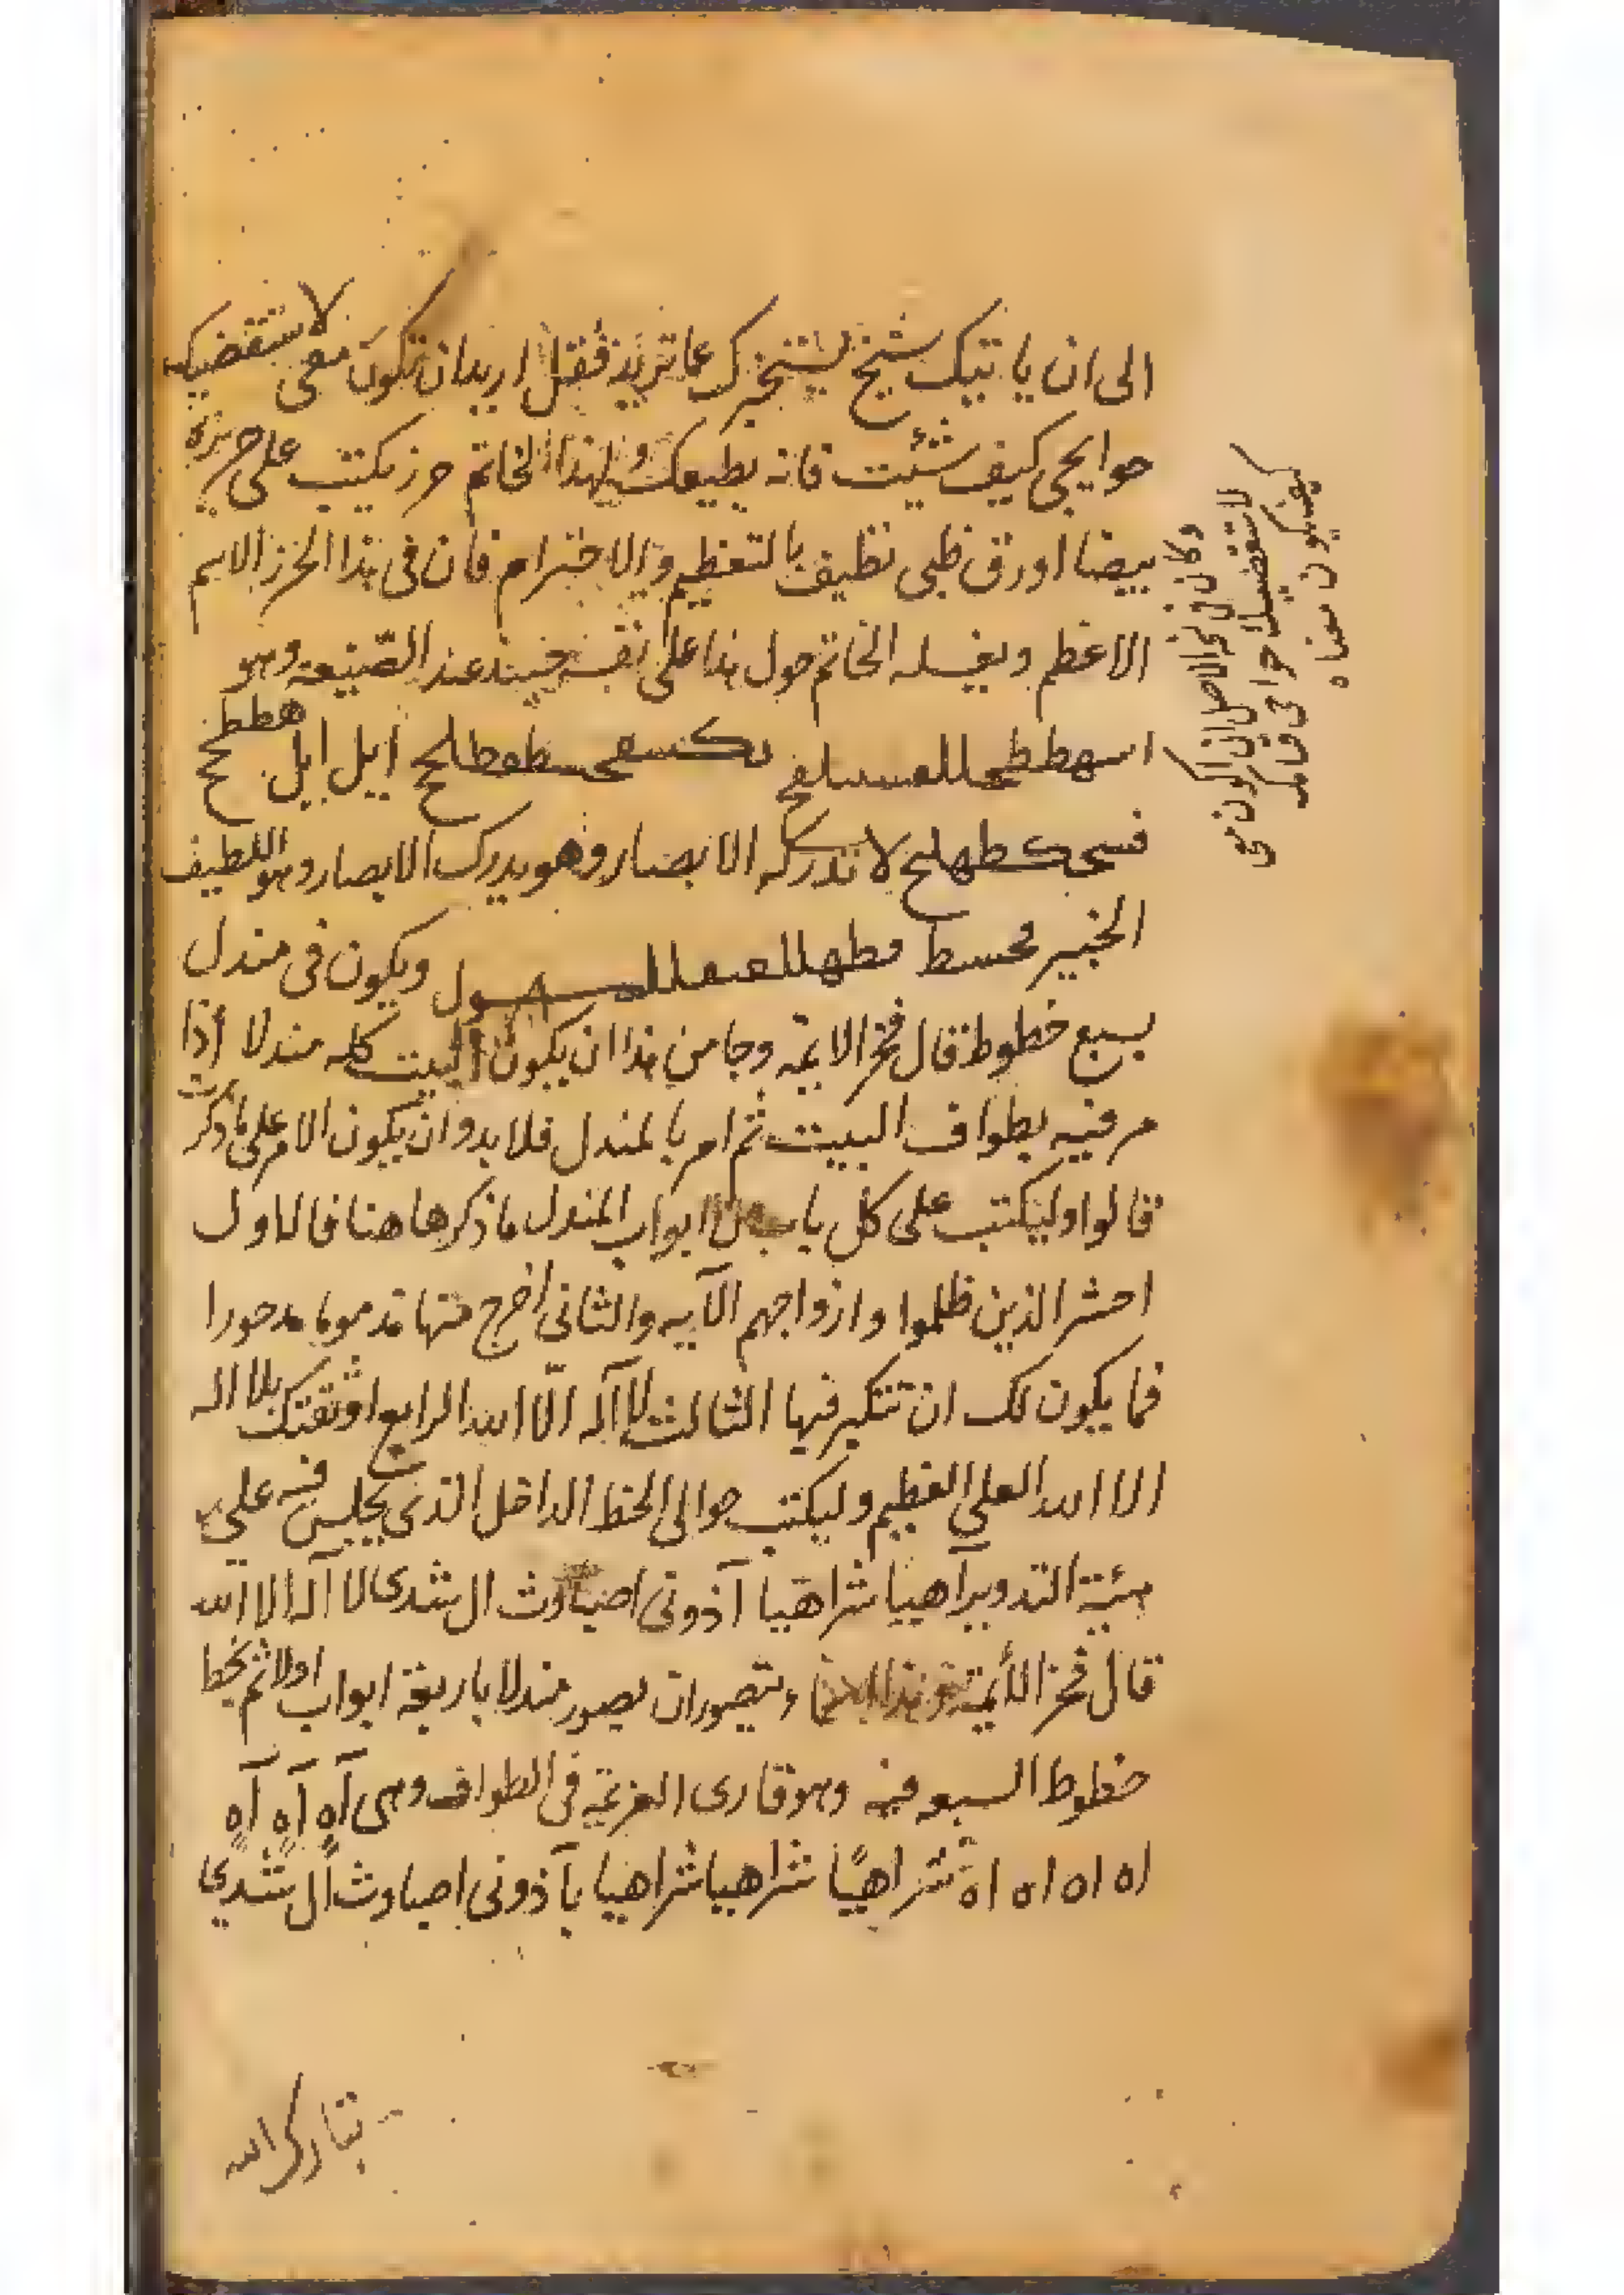 الى ان ياتيك شيخ يستخبرك عما تريد فقل اريد ان تكون معى لاستقضيك
حوايجى كيف شئت فانه يطيعك ولهذا الخاتم حرز يكتب على حريرة
بيضا او رق ظبى نظيف بالتعظيم والاحترام فان فى هذا الحرز الاسم
الاعظم ويغسله الخاتم حول هذا على نفسه عند الصنيعة وهو
ايل ايل
لا تدركه الابصار وهو يدرك الابصار وهو اللطيف
الخبير ويكون فى مندل
بسبع خطوط قال فخر الايمة وجا من هذا ان يكون البيت كله مندلا اذا
مر فيه بطواف البيت ثم امر بالمندل فلا بد وان يكون الامر على ما ذكرت
قالوا وليكتب على كل باب من ابواب المندل ما ذكرها هنا فالاول
احشر الذين ظلموا وازواجهم الآيه والثانى اخرج منها مذموما مدحورا
فما يكون لك ان تتكبر فيها الثالث لا آله الّا الله الرابع اوثقتك بلا اله
الا الله العلي العظيم وليكتب حوالى الخط الداخل الذى يجلس فيه على
هيئة التدوير آهيا شراهيا آذونى اصباوث ال شدى لا آله الا الله
قال فخر الأيمة يتصور ان يصور مندلا باربعة ابواب اولا ثم يخط
خطوط السبعه فيه وهو قارى العزيمة فى الطواف وهى آهٍ آهٍ آهٍ
اه اه اه اه شراهيًا شراهيا شراهيا يا آذونى اصباوث آل شدي
وكان فى نسخة الاصل ان اكون معى
لاستقضيك حوايجى فانك
كيف يكون معناه
تبارك الله